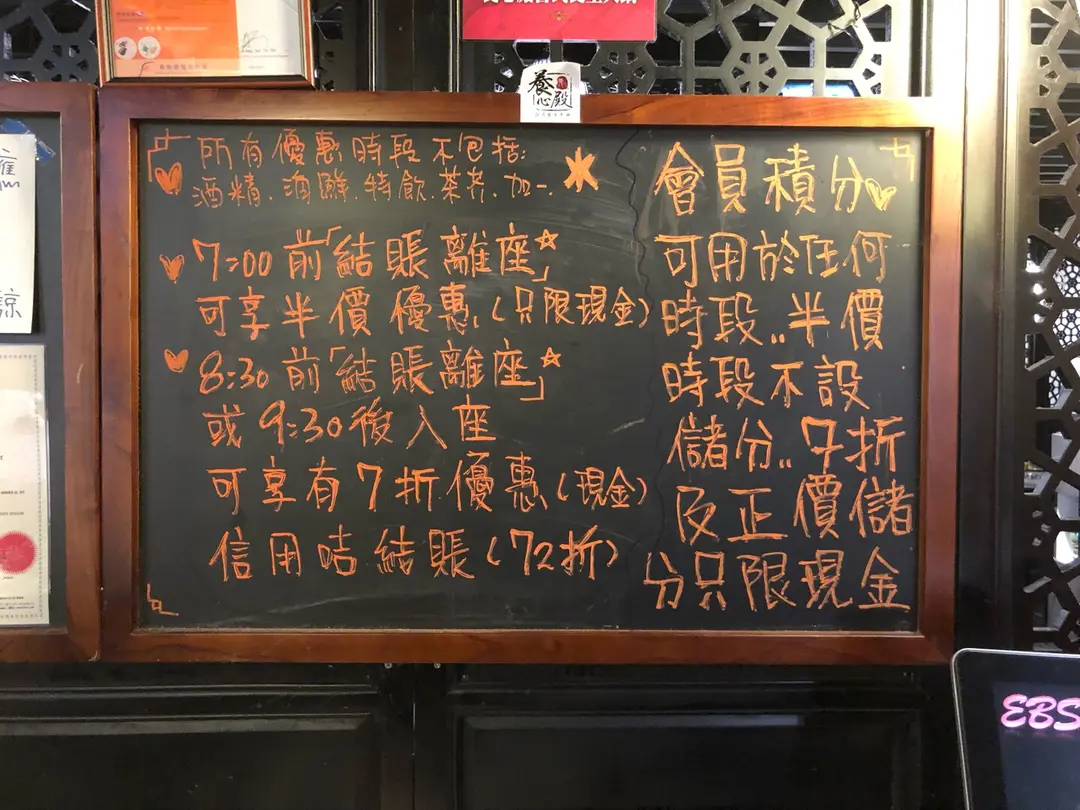 養心殿
所有優惠時段不包括:
酒精、海鮮、特飲、茶芥、加一.
7:00前「結賬離座☆」
可享半價優惠,(只限現金)
8:30前「結賬離座☆」
或9:30後入座
可享有7折優惠(現金)
信用咭結賬(72折)
會員積分
可用於任何
時段..半價
時段不設
儲分..7折
及正價儲
分只限現金
諒
EBS